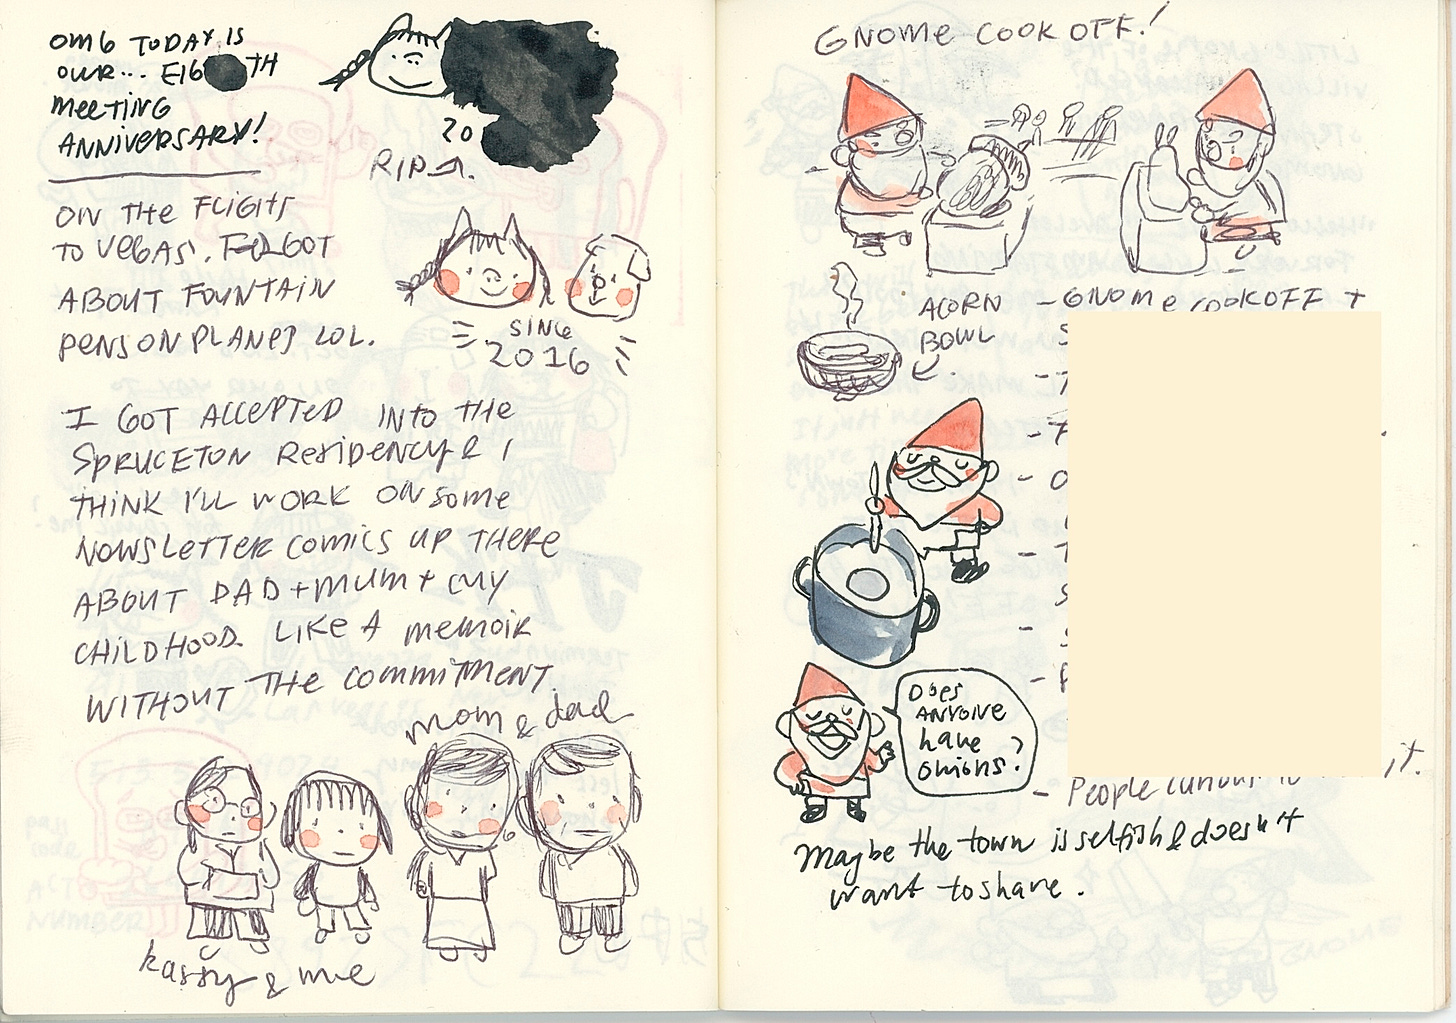 OMG TODAY IS
OUR... EIG TH
MEETING
ANNIVERSARY!
20
RIP
ON THE FLIGHT
TO VEGAS. FORGOT
ABOUT FOUNTAIN
PENS ON PLANES LOL.
SINCE
2016
I GOT ACCEPTED INTO THE
SPRUCETON RESIDENCY & I
THINK I'LL WORK ON SOME
NEWSLETTER COMICS UP THERE
ABOUT DAD + MUM + MY
CHILDHOOD LIKE A MEMOIR
WITHOUT THE COMMITMENT.
mom & dad
kassy & me
GNOME COOK OFF!
ACORN
BOWL
- GNOME COOKOFF +
DOES
ANYONE
have
onions?
- People
it.
Maybe the town is selfish & doesn't
want to share.